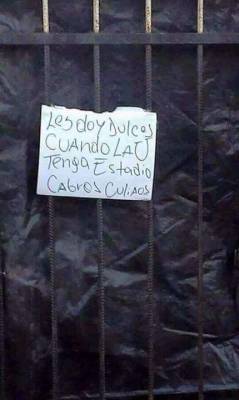 Les doy Dulces
CUANDO LA U
Tenga Estadio
CABROS CULIAOS